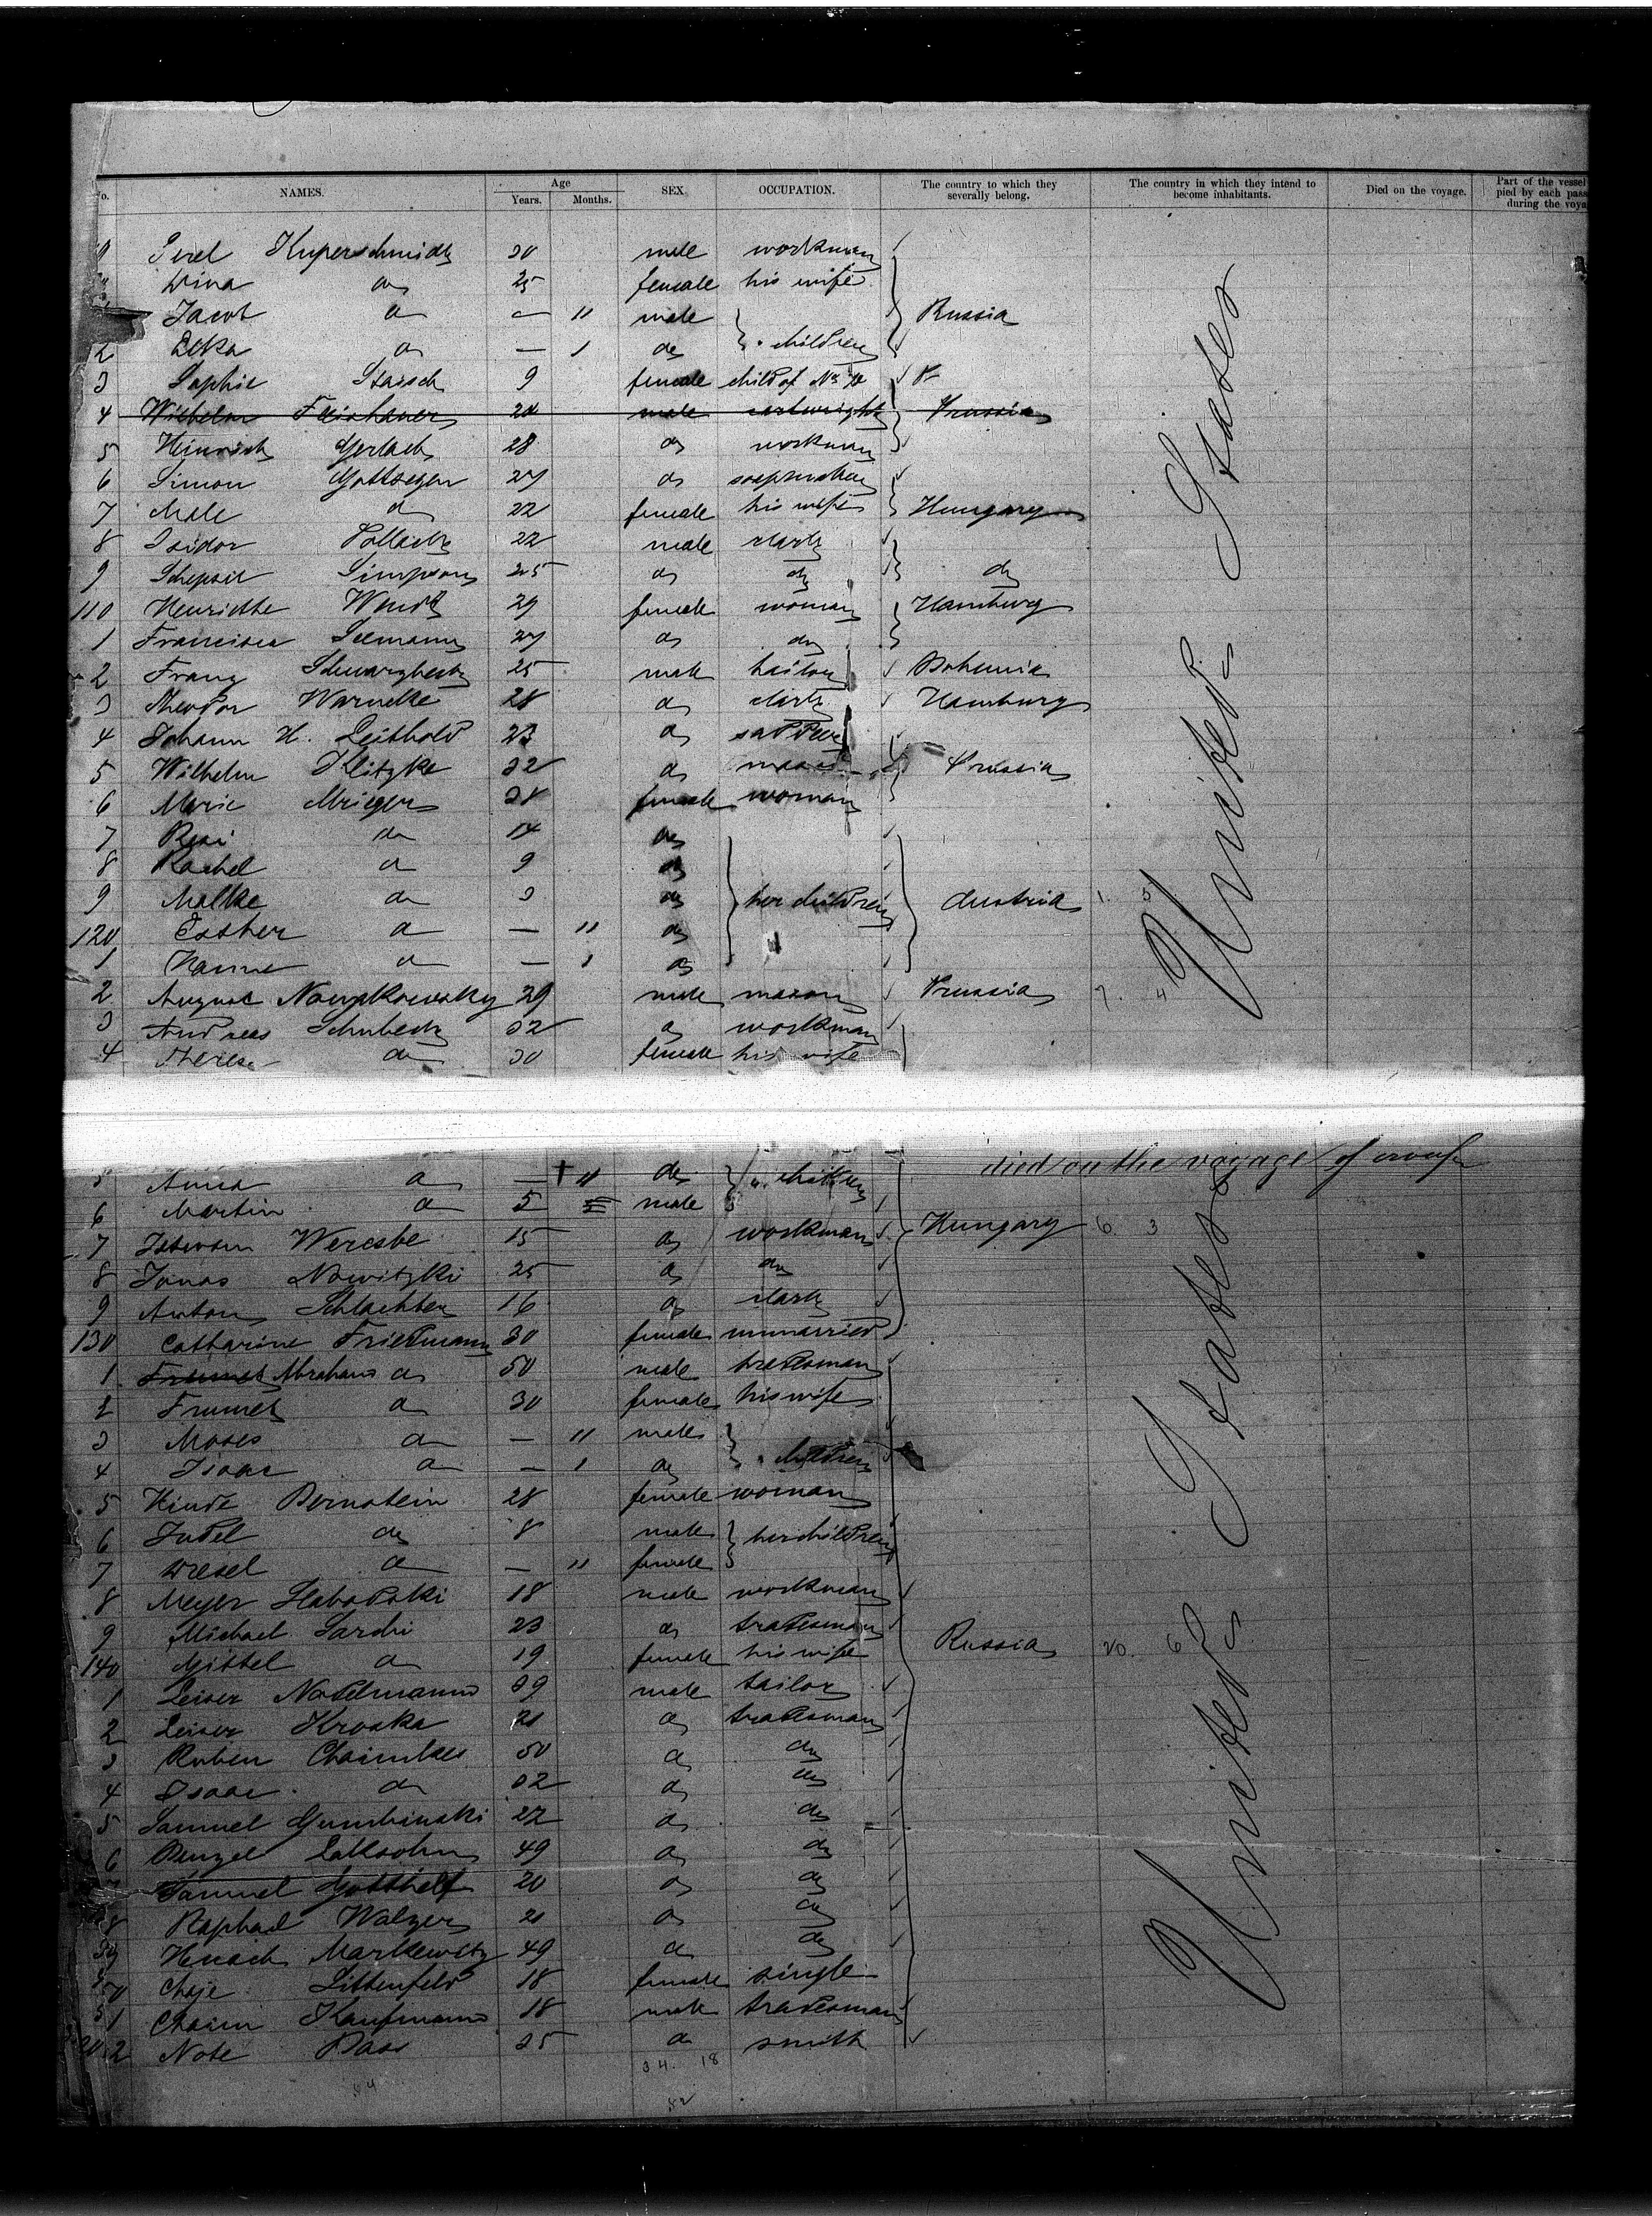 No. NAMES. Age Years. Months. SEX OCCUPATION. The country to which they severally belong. The country in which they intend to become inhabitants. Died on the voyage. Part of the vessel pied by each pass during the voya
Kuperschmidt 30 male workman
Dwina do 25 female his wife
Jacob do — 11 male
2 Elka do — 1 do " children Russia
3 Sophie 9 female child of No
4 Wilhelm male Prussia
5 Heinrich Gerlach 28 do workman
6 Simon Gottsegen 27 do
7 Male do 22 female his wife Hungary
8 Isidor Pollack 22 male clark
9 Schepsel Simpson 25 do do do
110 Henriette Wendt 29 female woman Hamburg
1 Francisca Seemann 27 do do
2 Franz Schwarzbeck 25 male tailor Bohemia
3 Theodor Warnecke 28 do clark Hamburg
4 Johann H. Leithold 23 do saddler
5 Wilhelm Klitzke 32 do mason Prussia
6 Marie Krieger 38 female woman
7 Resi do 14 do
8 Rachel do 9 do
9 Malke do 3 do her children Austria 1. 5
120 Esther do — 11 do
1 Hanne do — 1 do
2 August Nowakowsky 29 male mason Prussia 7. 4
3 Andreas Schubeck 32 do workman
4 Therese do 30 female his wife
5 Anna do — 11 do " children died on the voyage of croup
6 Martin do 5 male
7 Weresbe 15 do workman Hungary 6. 3
8 Jonas Nowitzki 25 do do
9 Anton Schlachter 16 do clark
130 Catharine Friedmann 30 female unmarried
1 Frumet Abraham do 50 male tradesman
2 Frumet do 30 female his wife
3 Moses do — 11 male
4 Isaac do — 1 do " children
5 Hinde Bernstein 28 female woman
6 Judel do 8 male her children
7 Dresel do — 11 female
8 Meyer Slabodski 18 male workman
9 Michael Sardi 23 do tradesman Russia 20. 6
140 Gittel do 19 female his wife
1 Leiser Nodelmann 39 male tailor
2 Leiser Kroska 21 do tradesman
3 Ruben Chaimkes 50 do do
4 Isaac do 32 do do
5 Samuel Gumbinski 22 do do
6 Benzel Latksohn 49 do do
7 Samuel Gotthelf 20 do do
8 Raphael Walzer 21 do do
9 Henach Markewitz 49 do do
Chaje Littenfeld 18 female single
1 Chaim Kaufmann 18 male tradesman
2 Note Pass 25 do smith
34. 18
82
United States
United States